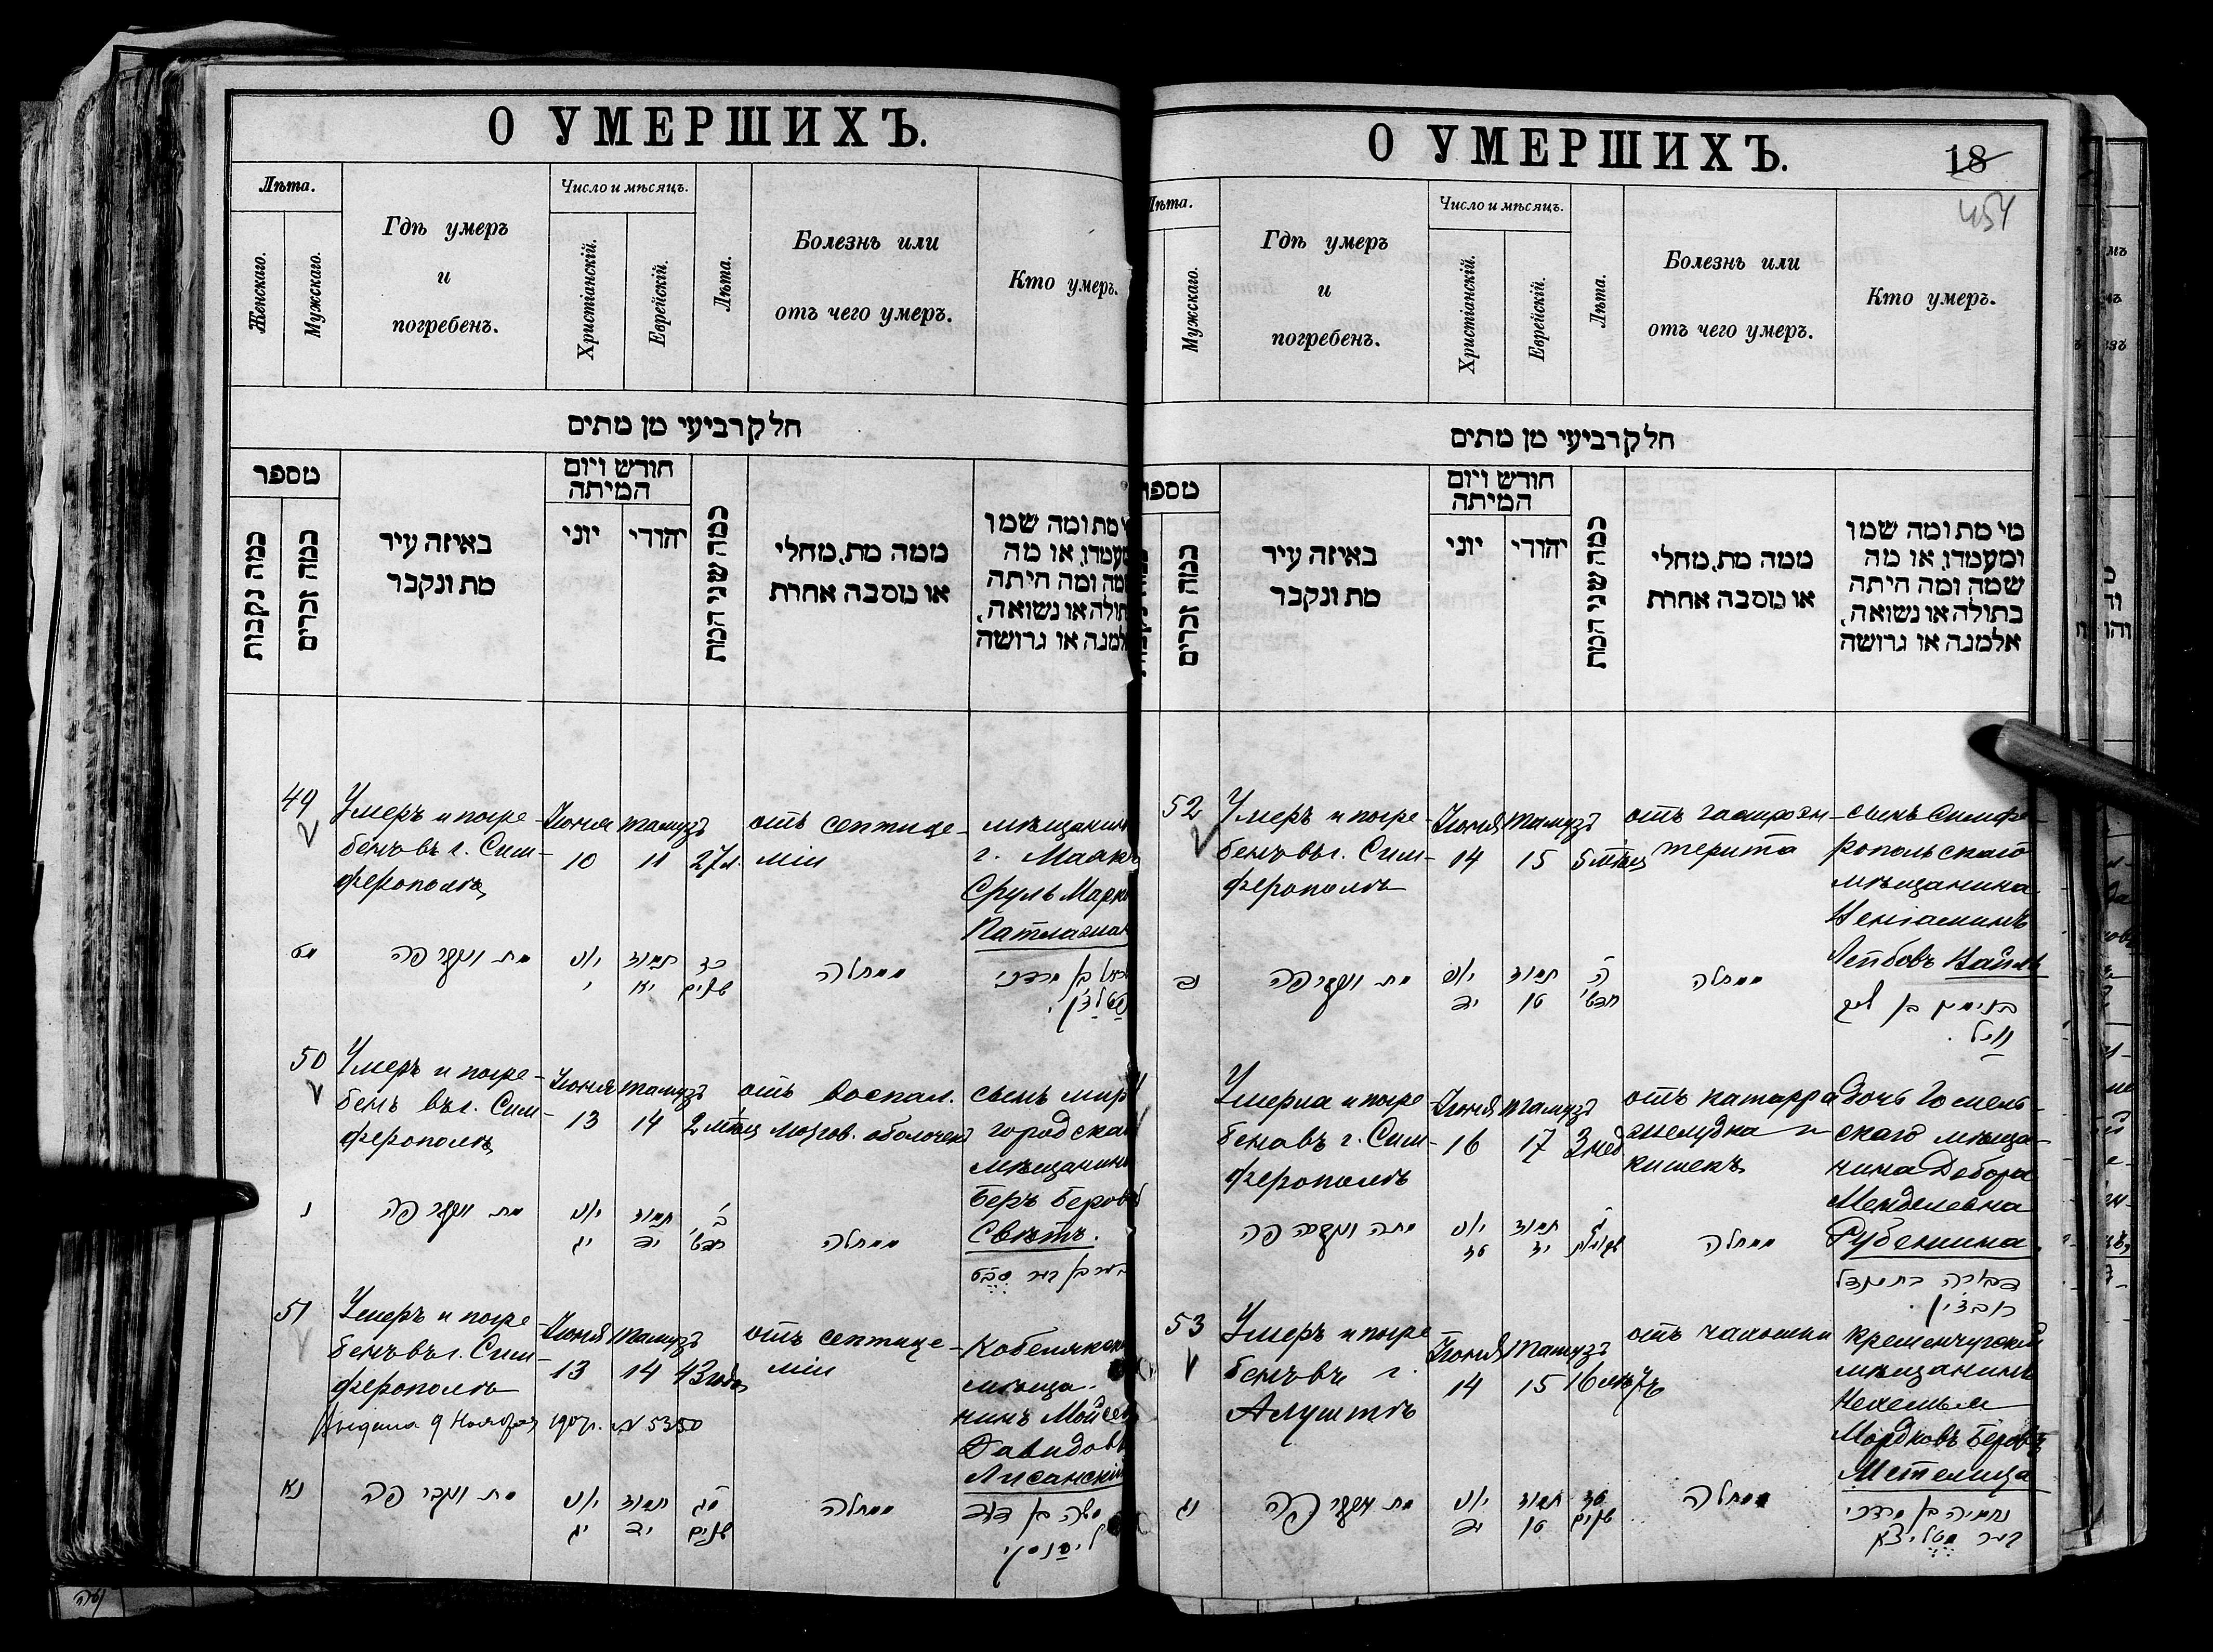 О УМЕРШИХЪ.
Лѣта.
Женскаго.
Мужскаго.
Гдѣ умеръ
и
погребенъ.
Число и мѣсяцъ.
Христіанскій.
Еврейскій.
Лѣта.
Болезнь или
отъ чего умеръ.
Кто умеръ.
חלק רביעי מן מתים
מספר
כמה נקבות
כמה זכרים
באיזה עיר
מת ונקבר
חודש ויום
המיתה
יוני
יהודי
כמה שני המת
ממה מת, מחלי
או מסבה אחרת
מת ומה שמו
או מה
ומה היתה
או נשואה,
או גרושה
49
Умеръ и погре-
бенъ въ г. Сим-
ферополѣ
Іюня
10
тамузъ
11
27 л.
отъ септице-
міи
мѣщанинъ
г. Маякъ
Сруль Марк
Патлажан
מט
מת ונקבר פה
יוני
י
תמוז
יא
כז
שנים
ממחלה
בן מרדכי
50
Умеръ и погре-
бенъ въ г. Сим-
ферополѣ
Іюня
13
тамузъ
14
2 мѣсяц
отъ воспал.
мозгов. оболочекъ
сынъ мир
городскаго
мѣщанина
Беръ Беровъ
Свѣтъ.
נ
מת ונקבר פה
יוני
יג
תמוז
יד
ב'
חדשי
ממחלה
51
Умеръ и погре-
бенъ въ г. Сим-
ферополѣ
Выдана 9 Ноября 1907 г. № 5350
Іюня
13
тамузъ
14
43 года
отъ септице-
міи
Кобелякскій
мѣща-
нинъ Мойсей
Давидовъ
Лисанскій
נא
מת ונקבר פה
יוני
יג
תמוז
יד
מג
שנים
ממחלה
משה בן דוד
ליסנסקי
О УМЕРШИХЪ.
18
454
Лѣта.
Мужскаго.
Гдѣ умеръ
и
погребенъ.
Число и мѣсяцъ.
Христіанскій.
Еврейскій.
Лѣта.
Болезнь или
отъ чего умеръ.
Кто умеръ.
חלק רביעי מן מתים
מספר
כמה זכרים
באיזה עיר
מת ונקבר
חודש ויום
המיתה
יוני
יהודי
כמה שני המת
ממה מת, מחלי
או מסבה אחרת
מי מת ומה שמו
ומעמדו, או מה
שמה ומה היתה
בתולה או נשואה,
אלמנה או גרושה
52
Умеръ и погре-
бенъ въ г. Сим-
ферополѣ
Іюня
14
тамузъ
15
5 мѣсяц
отъ гастроэн-
терита
сынъ Симфе-
ропольскаго
мѣщанина
Веніаминъ
Лейбовъ Вайль
נב
מת ונקבר פה
יוני
יד
תמוז
טו
ה'
חדשי
ממחלה
בנימין בן ליב
ווייל.
Умерла и погре
бена въ г. Сим-
ферополѣ
Іюня
16
тамузъ
17
3 нед
отъ катарра
желудка и
кишекъ
дочь Гомель-
скаго мѣща-
нина Дебора
Менделевна
Рубенчина
מתה ונקברה פה
יוני
טז
תמוז
יז
ג'
שבועות
ממחלה
דבורה בת מנדל
רובנצין.
53
Умеръ и погре
бенъ въ г.
Алуштѣ
Іюня
14
тамузъ
15
16 лѣтъ
отъ чахотки
Кременчугскій
мѣщанинъ
Нехемья
Мордковъ Беровъ
Метелица
נג
מת ונקבר פה
יוני
יד
תמוז
טו
טז
שנים
ממחלה
נחמיה בן מרדכי
בער מטליצא